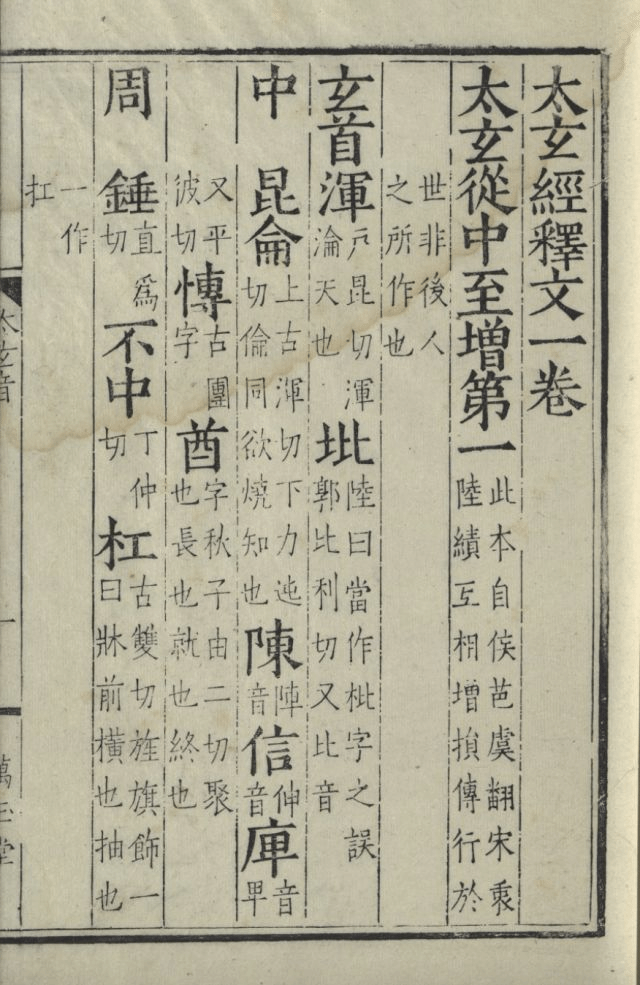 太玄經釋文一卷
太玄從中至增第一此本自侯芭虞翻宋衷陸績互相增損傳行於
世非後人之所作也
玄首渾戶昆切渾淪天也坒陸曰當作枇字之誤郭比利切又比音
中昆侖上古渾切下力迍切倫同欲燒知也陳陣音信伸音庳音畢
又平彼切慱古團字酋字秋子由二切聚也長也就也終也
周錘直爲切不中丁仲切杠古雙切旌旗飾一曰牀前橫也抽也
一作杠
太玄音 一 萬玉堂